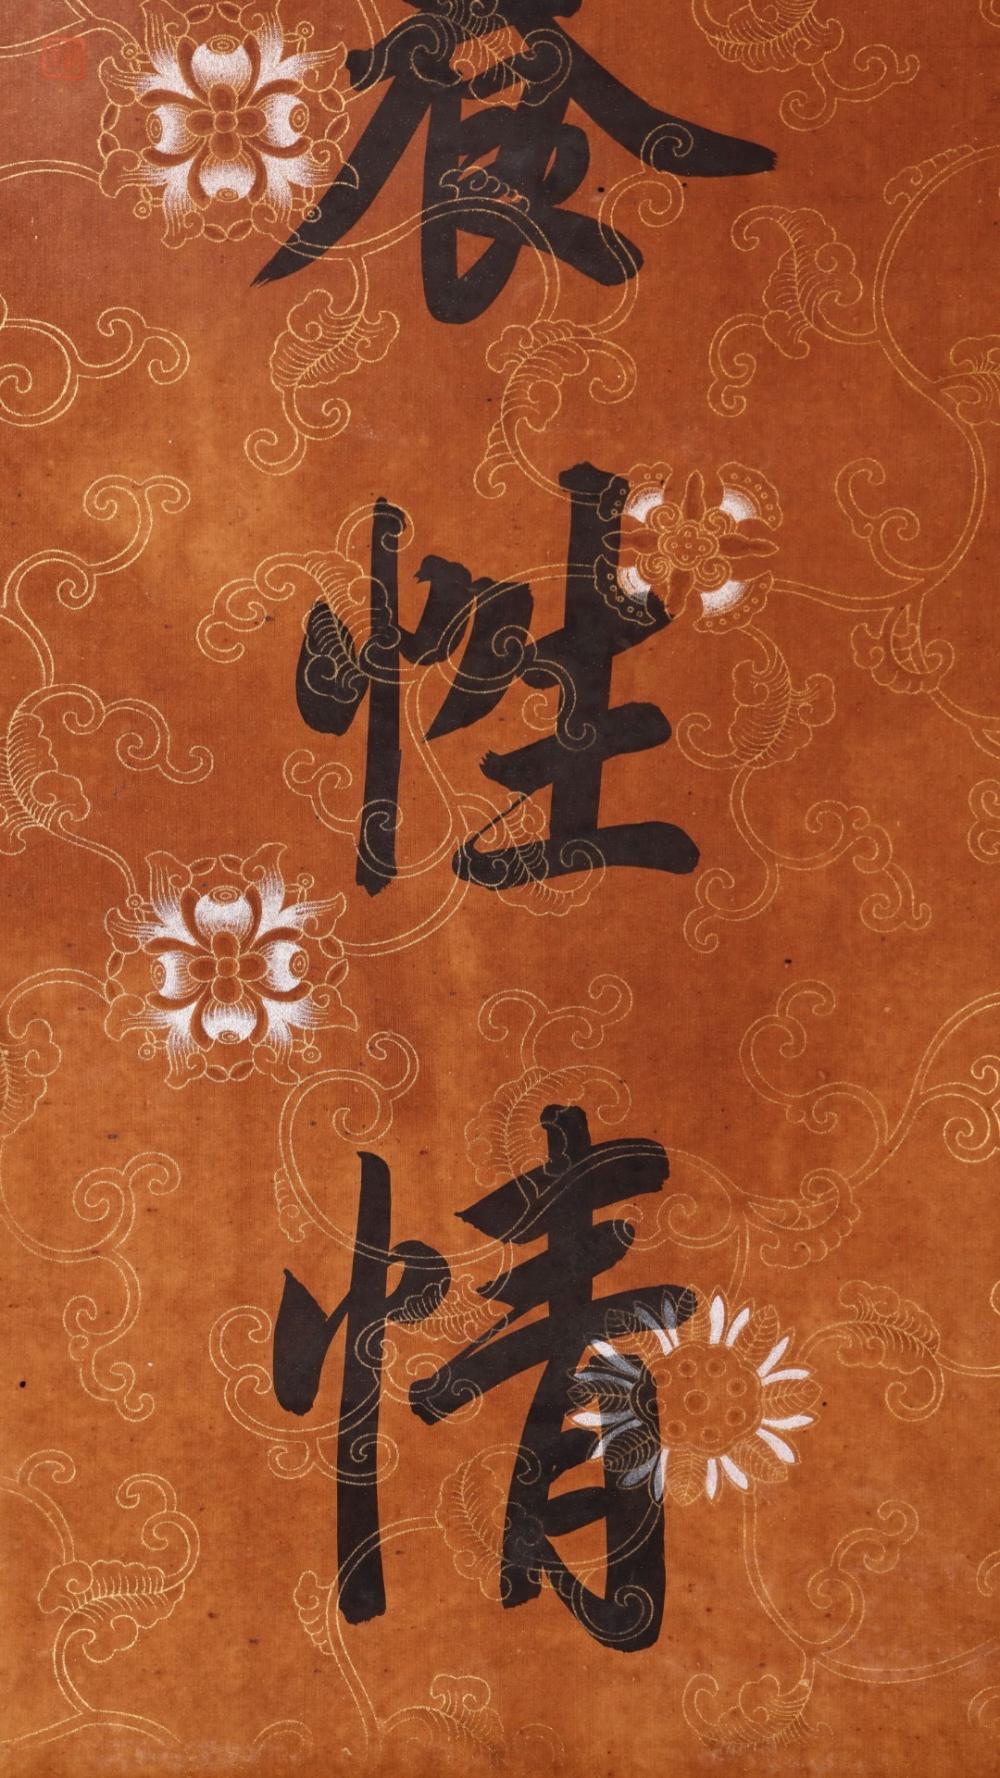 養性情